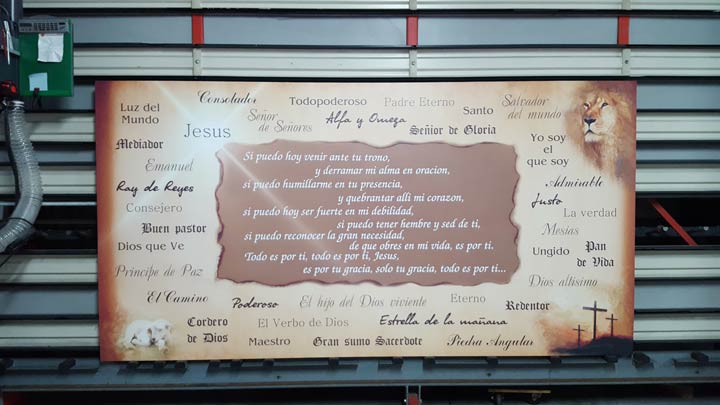 Consolador
Todopoderoso
Padre Eterno
Salvador
del mundo
Luz del
Mundo
Señor
de Señores
Alfa y Omega
Santo
Jesus
Señior de Gloria
Mediador
Yo soy
el
que soy
Emanuel
Ray de Reyes
Admirable
Justo
Consejero
La verdad
Buen pastor
Mesias
Dios que Ve
Ungido
Pan
de Vida
Principe de Paz
Dios altisimo
Si puedo hoy venir ante tu trono,
y derramar mi alma en oracion,
si puedo humillarme en tu presencia,
y quebrantar alli mi corazon,
si puedo hoy ser fuerte en mi debilidad,
si puedo tener hembre y sed de ti,
si puedo reconocer la gran necesidad,
de que obres en mi vida, es por ti.
Todo es por ti, todo es por ti, Jesus,
es por tu gracia, solo tu gracia, todo es por ti...
El Camino
Poderoso
El hijo del Dios viviente
Eterno
Redentor
Cordero
de Dios
El Verbo de Dios
Estrella de la mañana
Maestro
Gran sumo Sacerdote
Piedra Angular